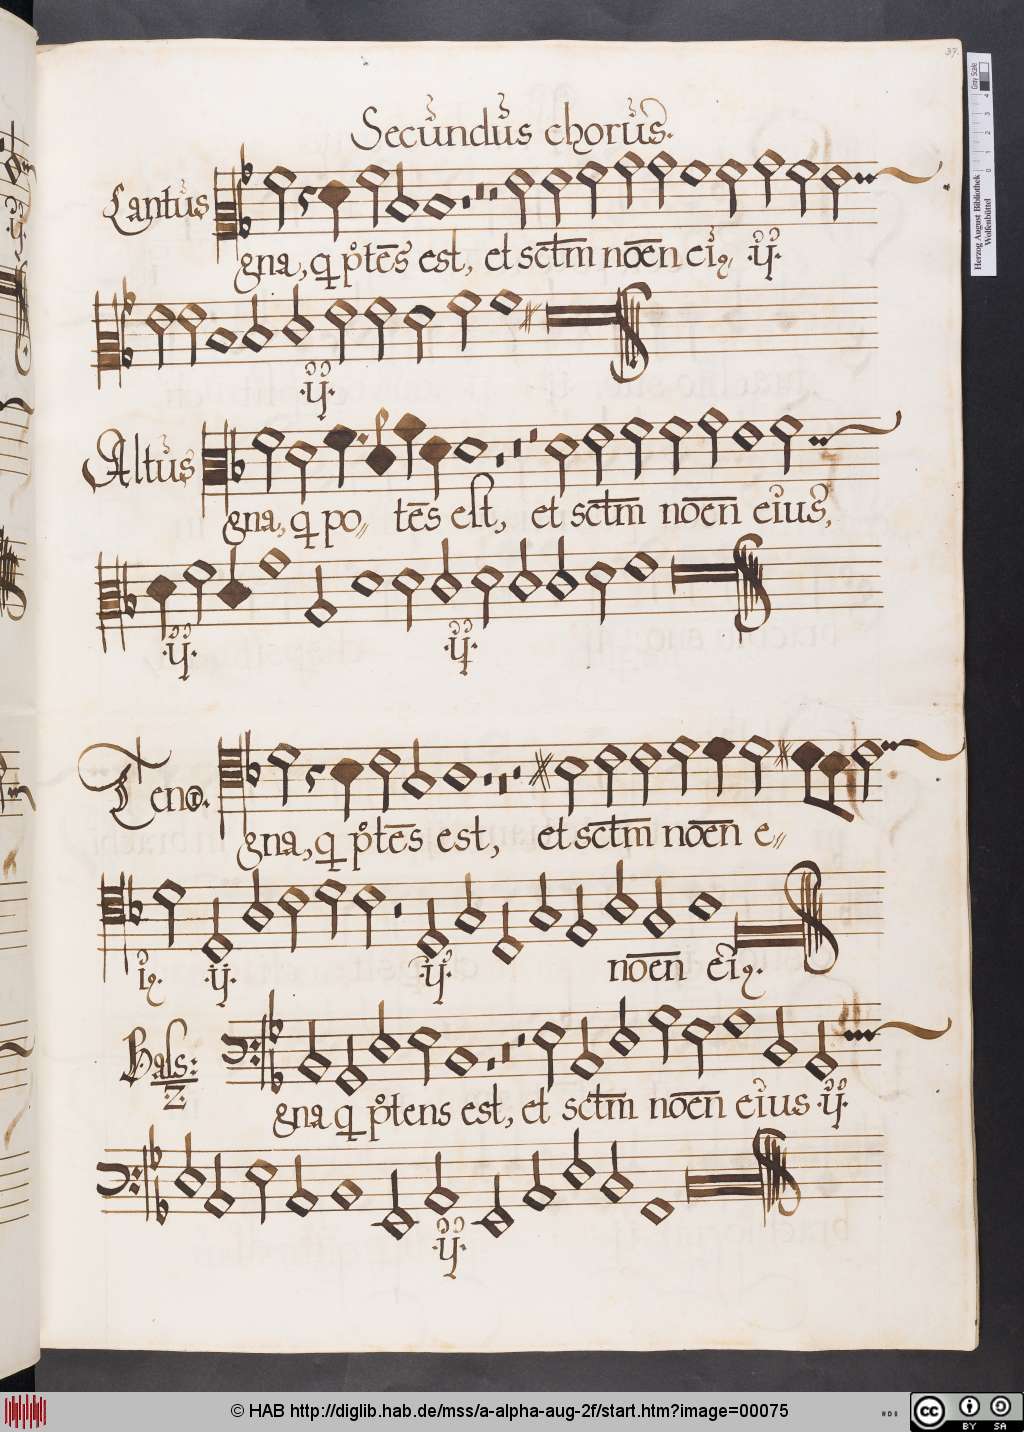 37.
Secundus chorus.
Cantus
gna, q põtēs est, et sctm noēn ei9 .ij.
.ij.
Altus
gna, q po= tēs est, et sctm noēn eius,
.ij. .ij.
Tenor.
gna, q põtēs est, et sctm noēn e=
i9. .ij. .ij. noēn ei9.
Bass:
2.
gna q põtens est, et sctm noēn eius .ij.
.ij.
Gray Scale
0 1 2 3 4
Herzog August Bibliothek
Wolfenbüttel
© HAB http://diglib.hab.de/mss/a-alpha-aug-2f/start.htm?image=00075
cc BY SA